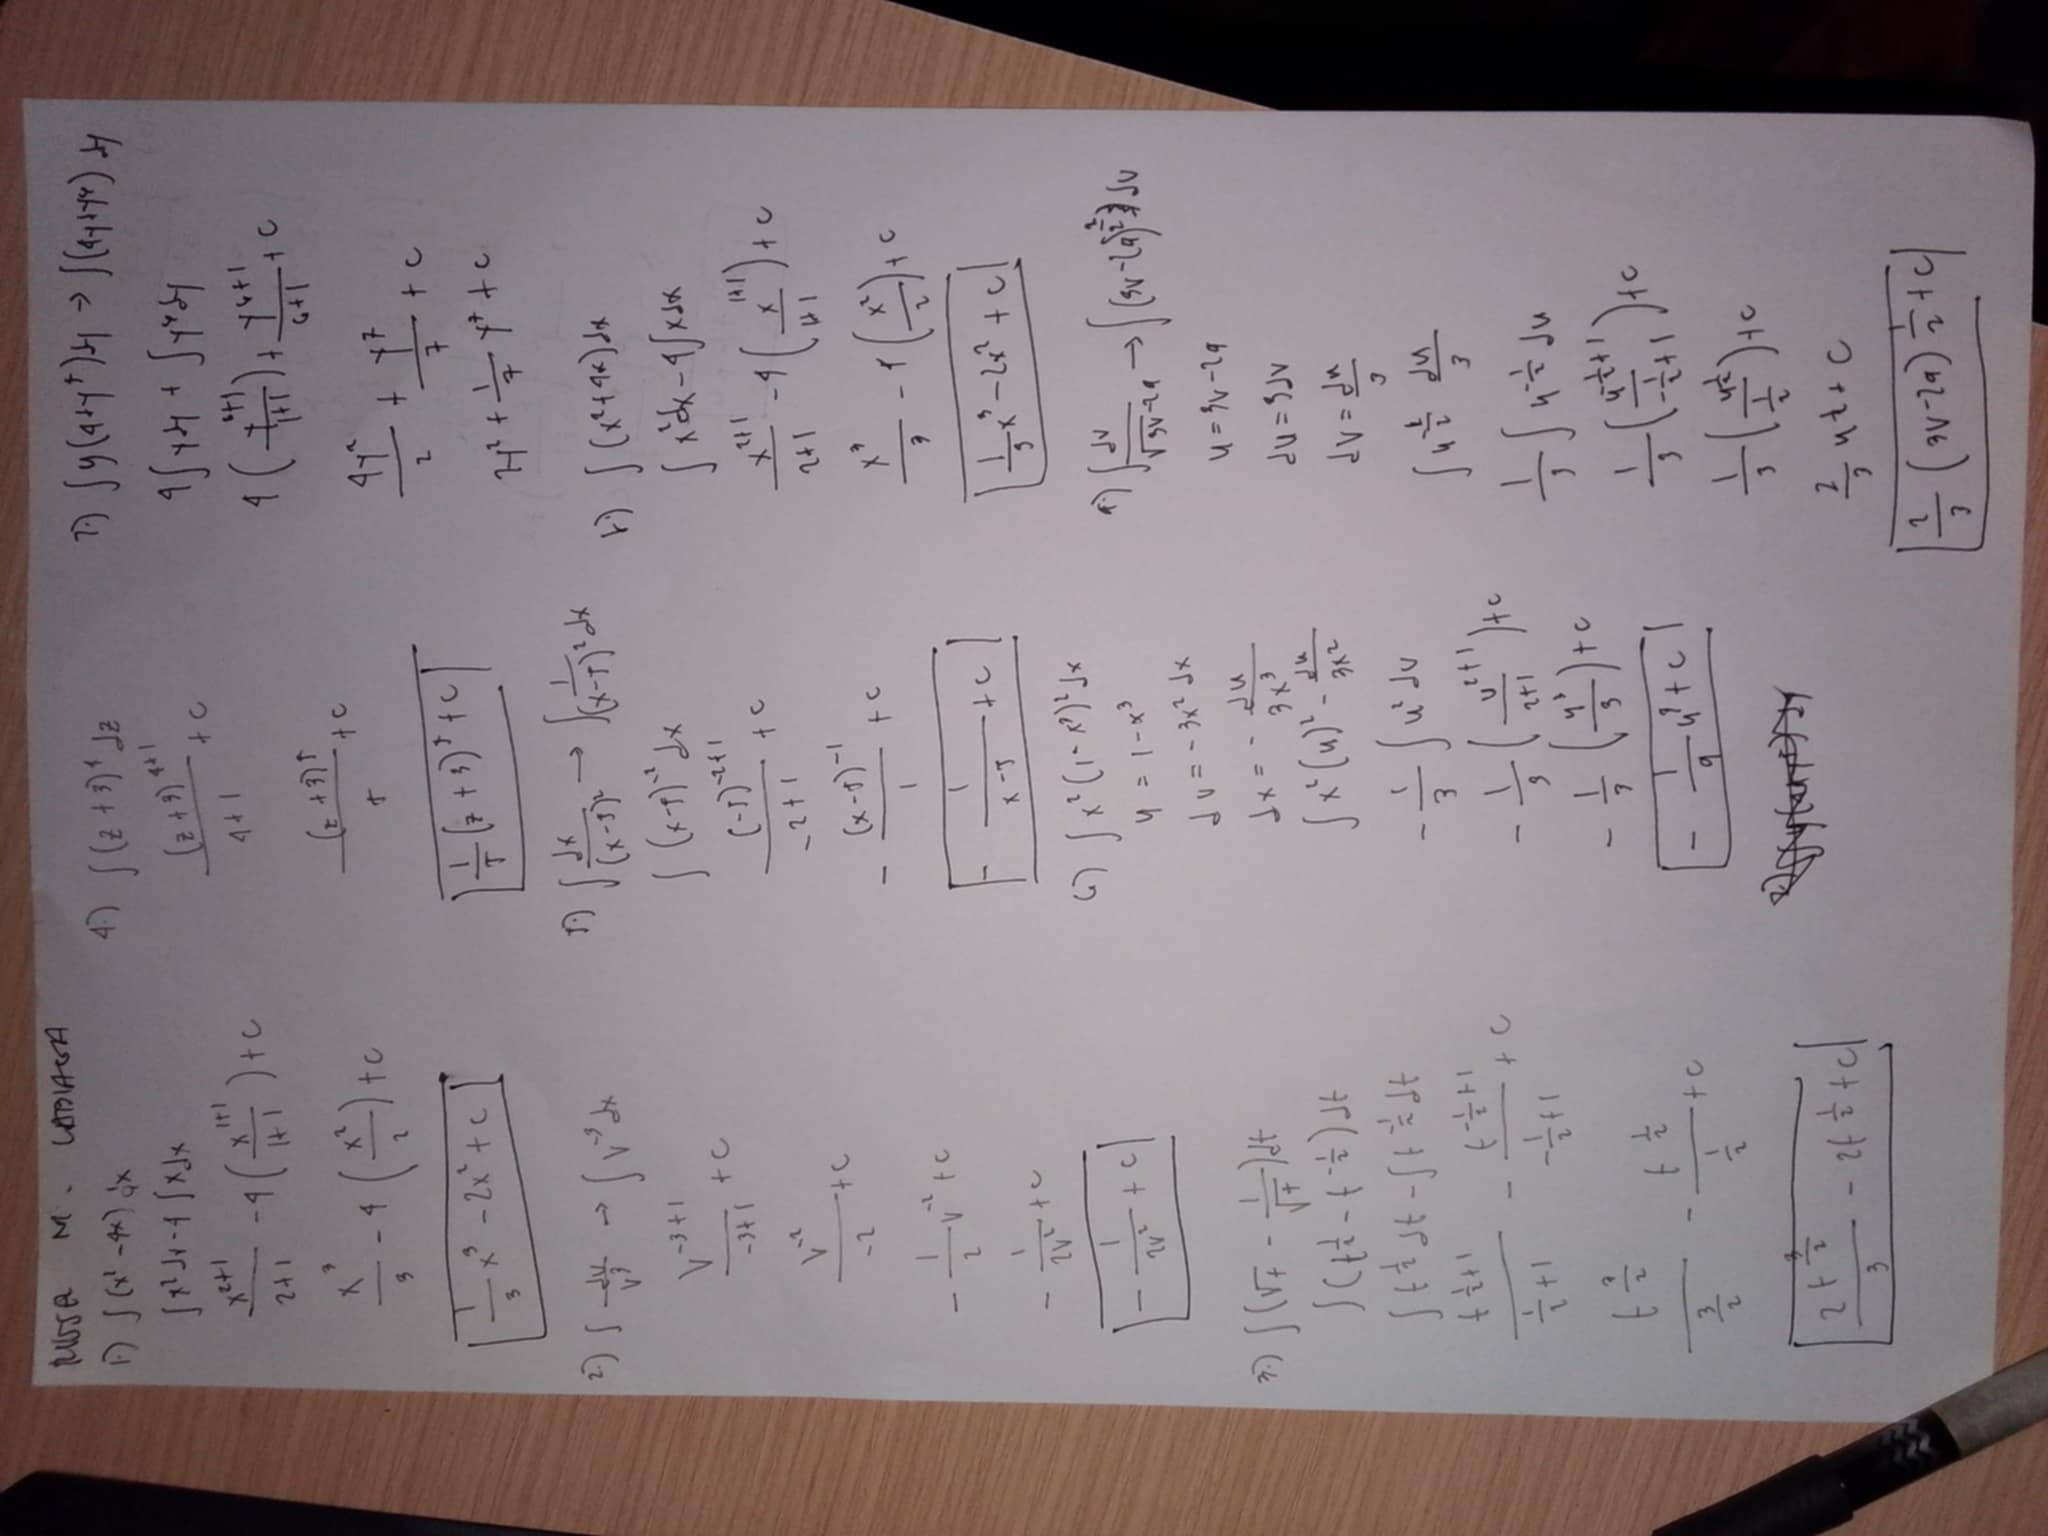 M.
1.) ∫(x² - 4x) dx
∫x² dx - 4 ∫x dx
x^(2+1)/(2+1) - 4(x^(1+1)/(1+1)) + c
x³/3 - 4(x²/2) + c
1/3 x³ - 2x² + c
2.) ∫ dv/v³ → ∫v⁻³ dx
v^(-3+1)/(-3+1) + c
v⁻²/-2 + c
- 1/2 v⁻² + c
- 1/2v² + c
- 1/2v² + c
3.) ∫(√t - 1/√t) dt
∫(t^(1/2) - t^(-1/2)) dt
∫t^(1/2) dt - ∫t^(-1/2) dt
t^(1/2+1)/(1/2+1) - t^(-1/2+1)/(-1/2+1) + c
t^(3/2)/(3/2) - t^(1/2)/(1/2) + c
2t^(3/2)/3 - 2t^(1/2) + c
4.) ∫(z+3)⁴ dz
(z+3)^(4+1)/(4+1) + c
(z+3)⁵/5 + c
1/5 (z+3)⁵ + c
5.) ∫ dx/(x-5)² → ∫ 1/(x-5)² dx
∫(x-5)⁻² dx
(-5)^(-2+1)/(-2+1) + c
- (x-5)⁻¹/1 + c
- 1/(x-5) + c
6.) ∫x²(1-x³)² dx
u = 1-x³
du = -3x² dx
dx = - du/3x³
∫x²(u)² - du/3x²
- 1/3 ∫u² du
- 1/3 (u^(2+1)/(2+1)) + c
- 1/3 (u³/3) + c
- 1/9 u³ + c
7.) ∫y(4+y⁵)dy → ∫(4y+y⁶) dy
4∫y dy + ∫y⁶ dy
4(y^(1+1)/(1+1)) + y^(6+1)/(6+1) + c
4y²/2 + y⁷/7 + c
2y² + 1/7 y⁷ + c
8.) ∫(x²+4x) dx
∫x² dx - 4∫x dx
x^(2+1)/(2+1) - 4(x^(1+1)/(1+1)) + c
x³/3 - 4(x²/2) + c
1/3 x³ - 2x² + c
9.) ∫ dv/√3v-2a → dv
u = 3v-2a
du = 3dv
dv = du/3
∫u^(-1/2) du/3
1/3 ∫u^(-1/2) du
1/3 (u^(-1/2+1)/(-1/2+1)) + c
1/3 (u^(1/2)/(1/2)) + c
2/3 u^(1/2) + c
2/3 (3v-2a)^(1/2) + c